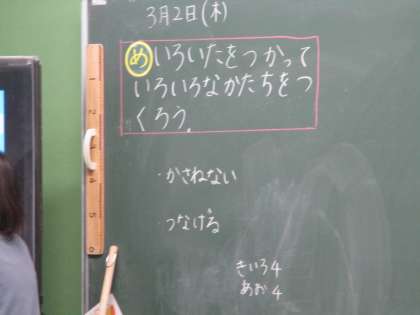 3月2日(木)
めいろいたをつかって
いろいろなかたちをつ
くろう。
・かさねない
・つなげる
きいろ4
あお4
1
2
4
5
6